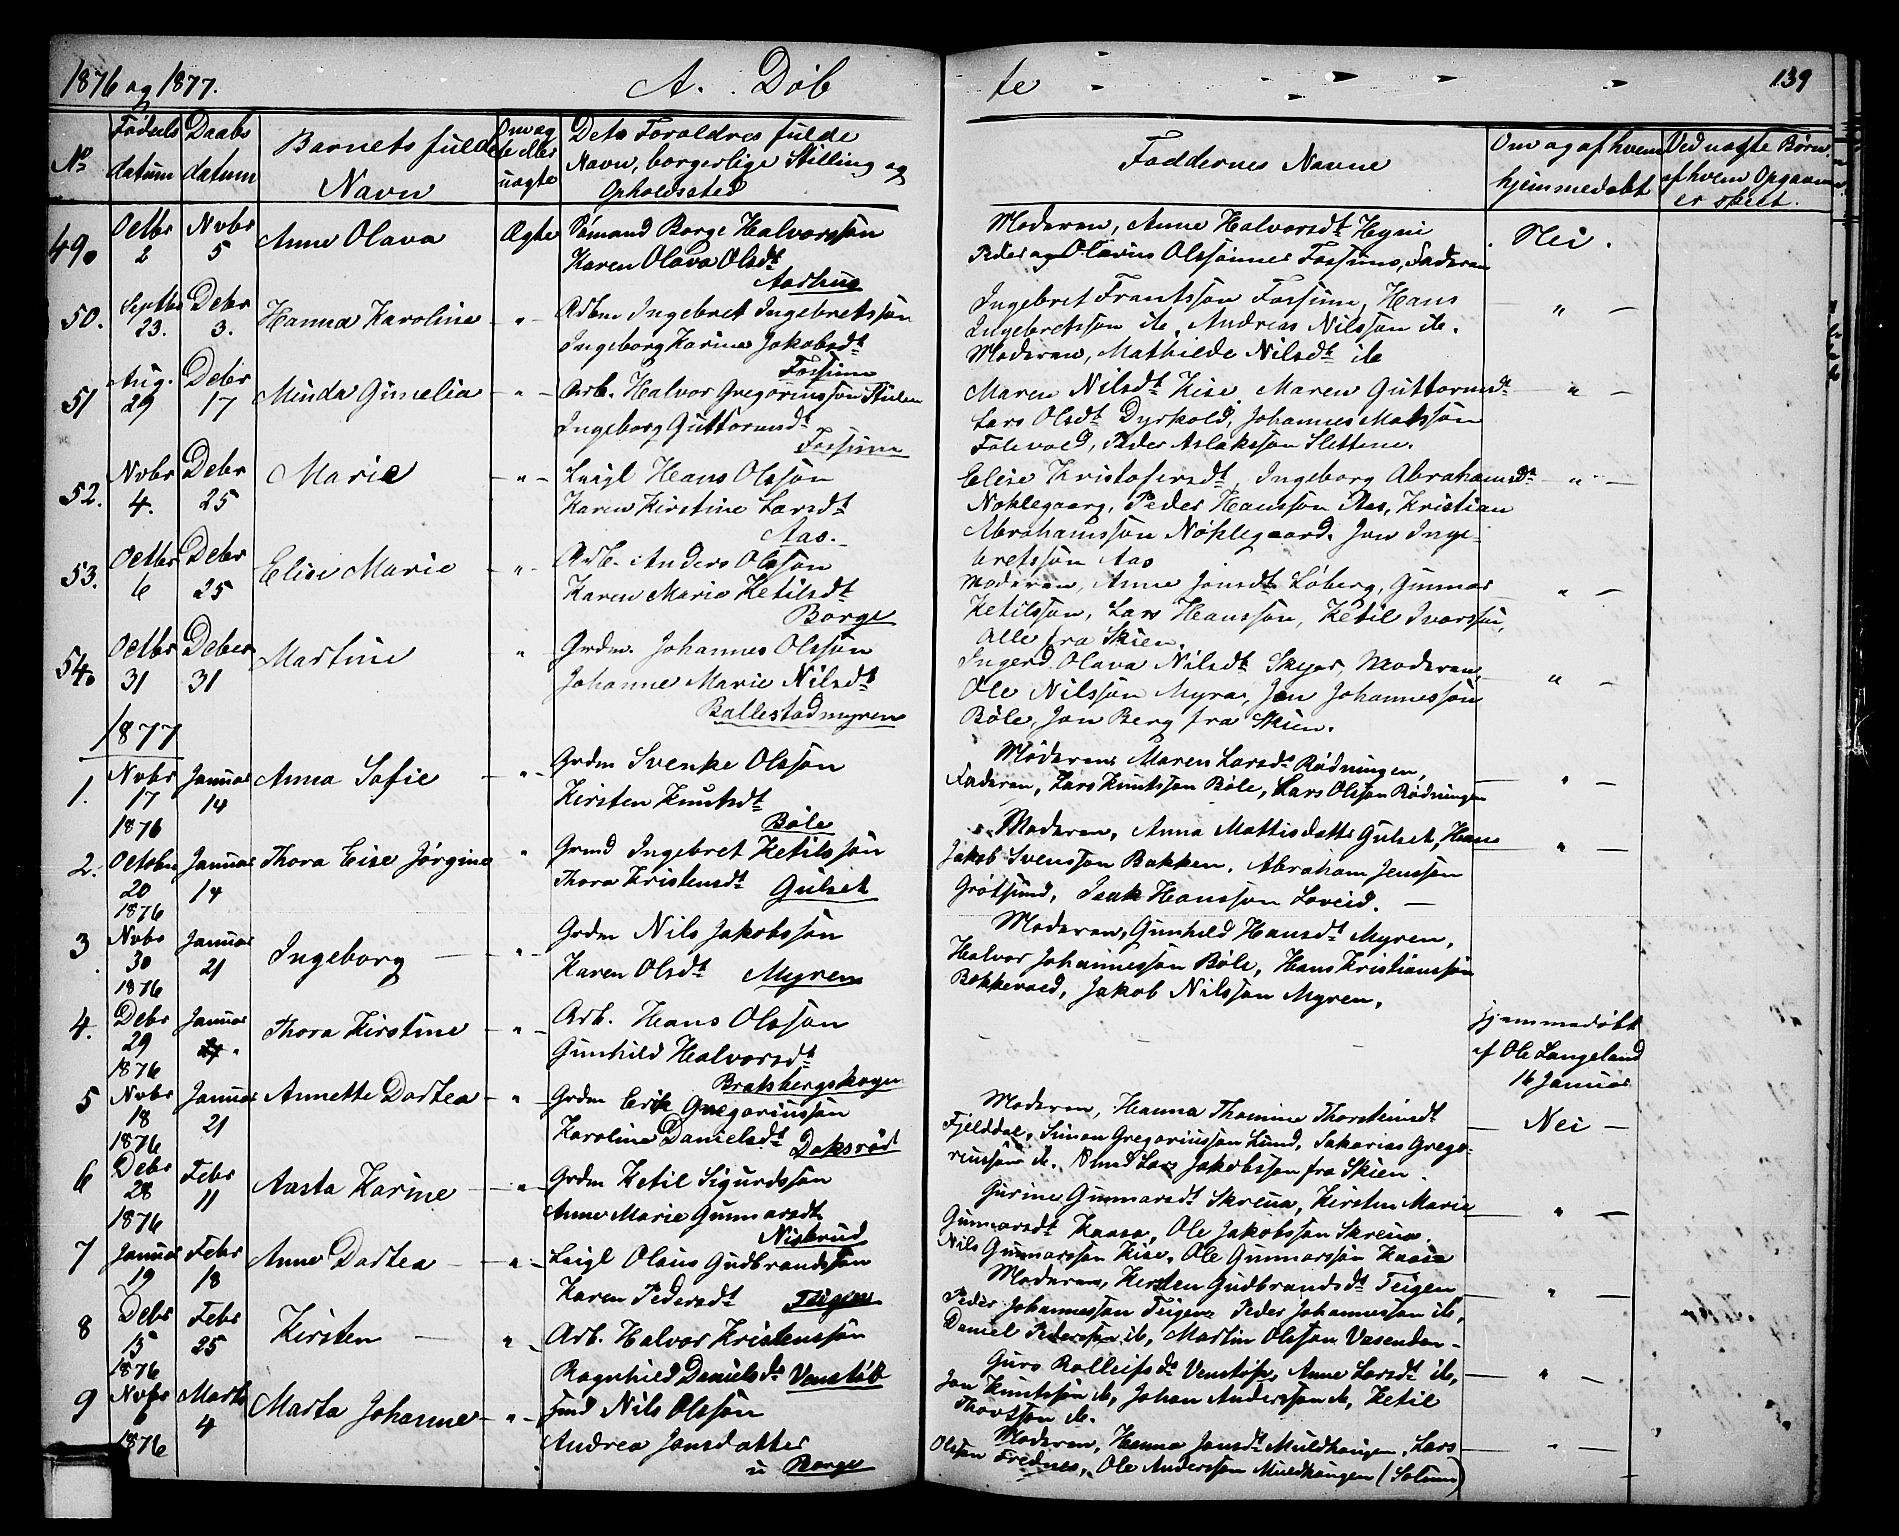 1876 og 1877.
A. Døb
te
139
No
Fødsels datum
Daabs datum
Barnets fulde Navn
Om ægte eller uægte
Dets Forældres fulde Navn, borgerlige Stilling og Opholdssted
Faddernes Navne
Om og af hvem hjemmedøbt
Ved uægte Børn, af hvem Opgaven er skeet.
49. Octbr 2 Novbr 5 Anne Olava Ægte Sømand Borge Halvorssøn
Karen Olava Olsdt
Aarhus
Moderen, Anne Halvorsdt Hyni
Peder og Olavus Olssønner Fossum, Faderen
Nei.
50. Septbr 23. Debr 3. Hanna Karoline - " - Arbm Ingebret Ingebretssøn
Ingeborg Karine Jakobsdt
Fossum
Ingebret Frantssøn Fossum, Hans
Ingebretssøn ib. Andreas Nilssøn ib.
Moderen, Mathilde Nilsdt ib
" -
51 Aug. 29 Debr 17 Minda Gunelia - " - Arb. Halvor Gregoriussøn Stulen
Ingeborg Guttormsdt
Fossum
Maren Nilsdt Kise, Maren Guttormsdt
Lars Olsdt Dyrkold, Johannes Matssøn
Folevold, Peder Aslakssøn Slettene.
- " -
52. Novbr 4. Debr 25 Marie - " - Leigl Hans Olssøn
Karen Kirstine Larsdt
Aas.
Elise Kristofersdt, Ingeborg Abrahamsdt
Nøklegaard, Peder Hanssøn Aas, Kristian
Abrahamssøn Nøklegaard. Jon Inge-
bretssøn Aas
- " -
53. Octbr 6 Debr 25 Elise Marie - " - Arb. Anders Olssøn
Karen Marie Ketilsdt
Borge
Moderen, Anne Jonsdt Løberg, Gunnar
Ketilssøn, Lars Hanssøn, Ketil Ivarssøn,
Alle fra Skien.
- " -
54. Octbr 31 Debr 31 Martine " Grdm. Johannes Olssøn
Johanne Marie Nilsdt
Ballestadmyren
Ingerd Olava Nilsdt Skyer, Moderen,
Ole Nilssøn Myra, Jon Johannessøn
Bøle, Jon Berg fra Skien.
" -
1877
1. Novbr 17 1876 Januar 14 Anna Sofie - " - Grdm Svenke Olssøn
Kirsten Knutsdt
Bøle
Moderen, Maren Larsdt Rødningen,
Faderen, Lars Knutssøn Bøle, Lars Olssøn Rødningen
- " -
2. October 20 1876 Januar 14 Thora Elise Jørgine " Grmd Ingebret Ketilssøn
Thora Kristensdt Gulset
Moderen, Anna Mattisdatter Gulset, Hans
Jakob Svenssøn Bakken, Abraham Jenssøn
Grøtsund, Isak Hanssøn Løveid. -
- " -
3 Novbr 30 1876 Januar 21 Ingeborg - " Grdm Nils Jakobssøn
Karen Olsdt Myren
Moderen, Gunhild Hansdt Myren,
Halvor Johannessøn Bøle, Hans Kristianssøn
Bekkevold, Jakob Nilssøn Myren.
4. Debr 29 1876 Januar Thora Kirstine - " - Arb. Hans Olssøn
Gunhild Halvorsdt
Bratsbergskogen
- - -
Hjemmedøbt
af Ole Langeland
16 Januar
5 Novbr 18 1876 Januar 21 Annette Dortea - " - Grdm Erik Gregoriussøn
Karoline Danielsdt Doksrød
Moderen, Hanna Thomine Thorsteinsdt
Fjelddal, Simon Gregoriussøn Lund, Sakarias Grego-
riussøn ib. Lars Jakobssøn fra Skien.
- Nei -
6 Debr 28 1876 Febr 11 Aasta Karine - " - Grdm Ketil Sigurdssøn
Anne Marie Gunnarsdt
Nisbrud
Gurine Gunnarsdt Skreua, Kirsten Marie
Gunnarsdt Kaasa, Ole Jakobssøn Skreua.
Nils Gunnarssøn Kise, Ole Gunnarssøn Kaasa
- " -
7 Januar 19 Febr 18 Anne Dortea - " - Leigl Olaus Gudbrandssøn
Karen Pedersdt Teigen
Moderen, Kirsten Gudbrandsdt Teigen
Peder Johannessøn Teigen, Peder Johannessøn ib,
Daniel Pederssøn ib, Martin Olssøn Vasenden -
- " -
8 Debr 15 1876 Febr 25 Kirsten - " - Arb. Halvor Kristenssøn
Ragnhild Danielsdt Venstøb
Guro Rolleifsdt Venstøp, Anne Larsdt ib,
Jon Knutssøn ib, Johan Anderssøn ib, Ketil
Thovssøn ib.
- " -
9 Novbr 6 1876 Marts 4 Marta Johanne - " - Nils Olssøn
Andrea Jonsdatter
u Borge
Moderen, Hanna Jonsdt Muldhaugen, Lars
Olssøn Frednes, Ole Anderssøn Muldhaugen (Solum)
- " -